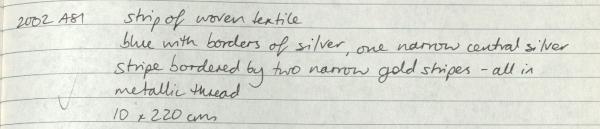 2002 A81 strip of woven textile
blue with borders of silver, one narrow central silver
stripe bordered by two narrow gold stripes - all in
metallic thread
10 x 220 cms